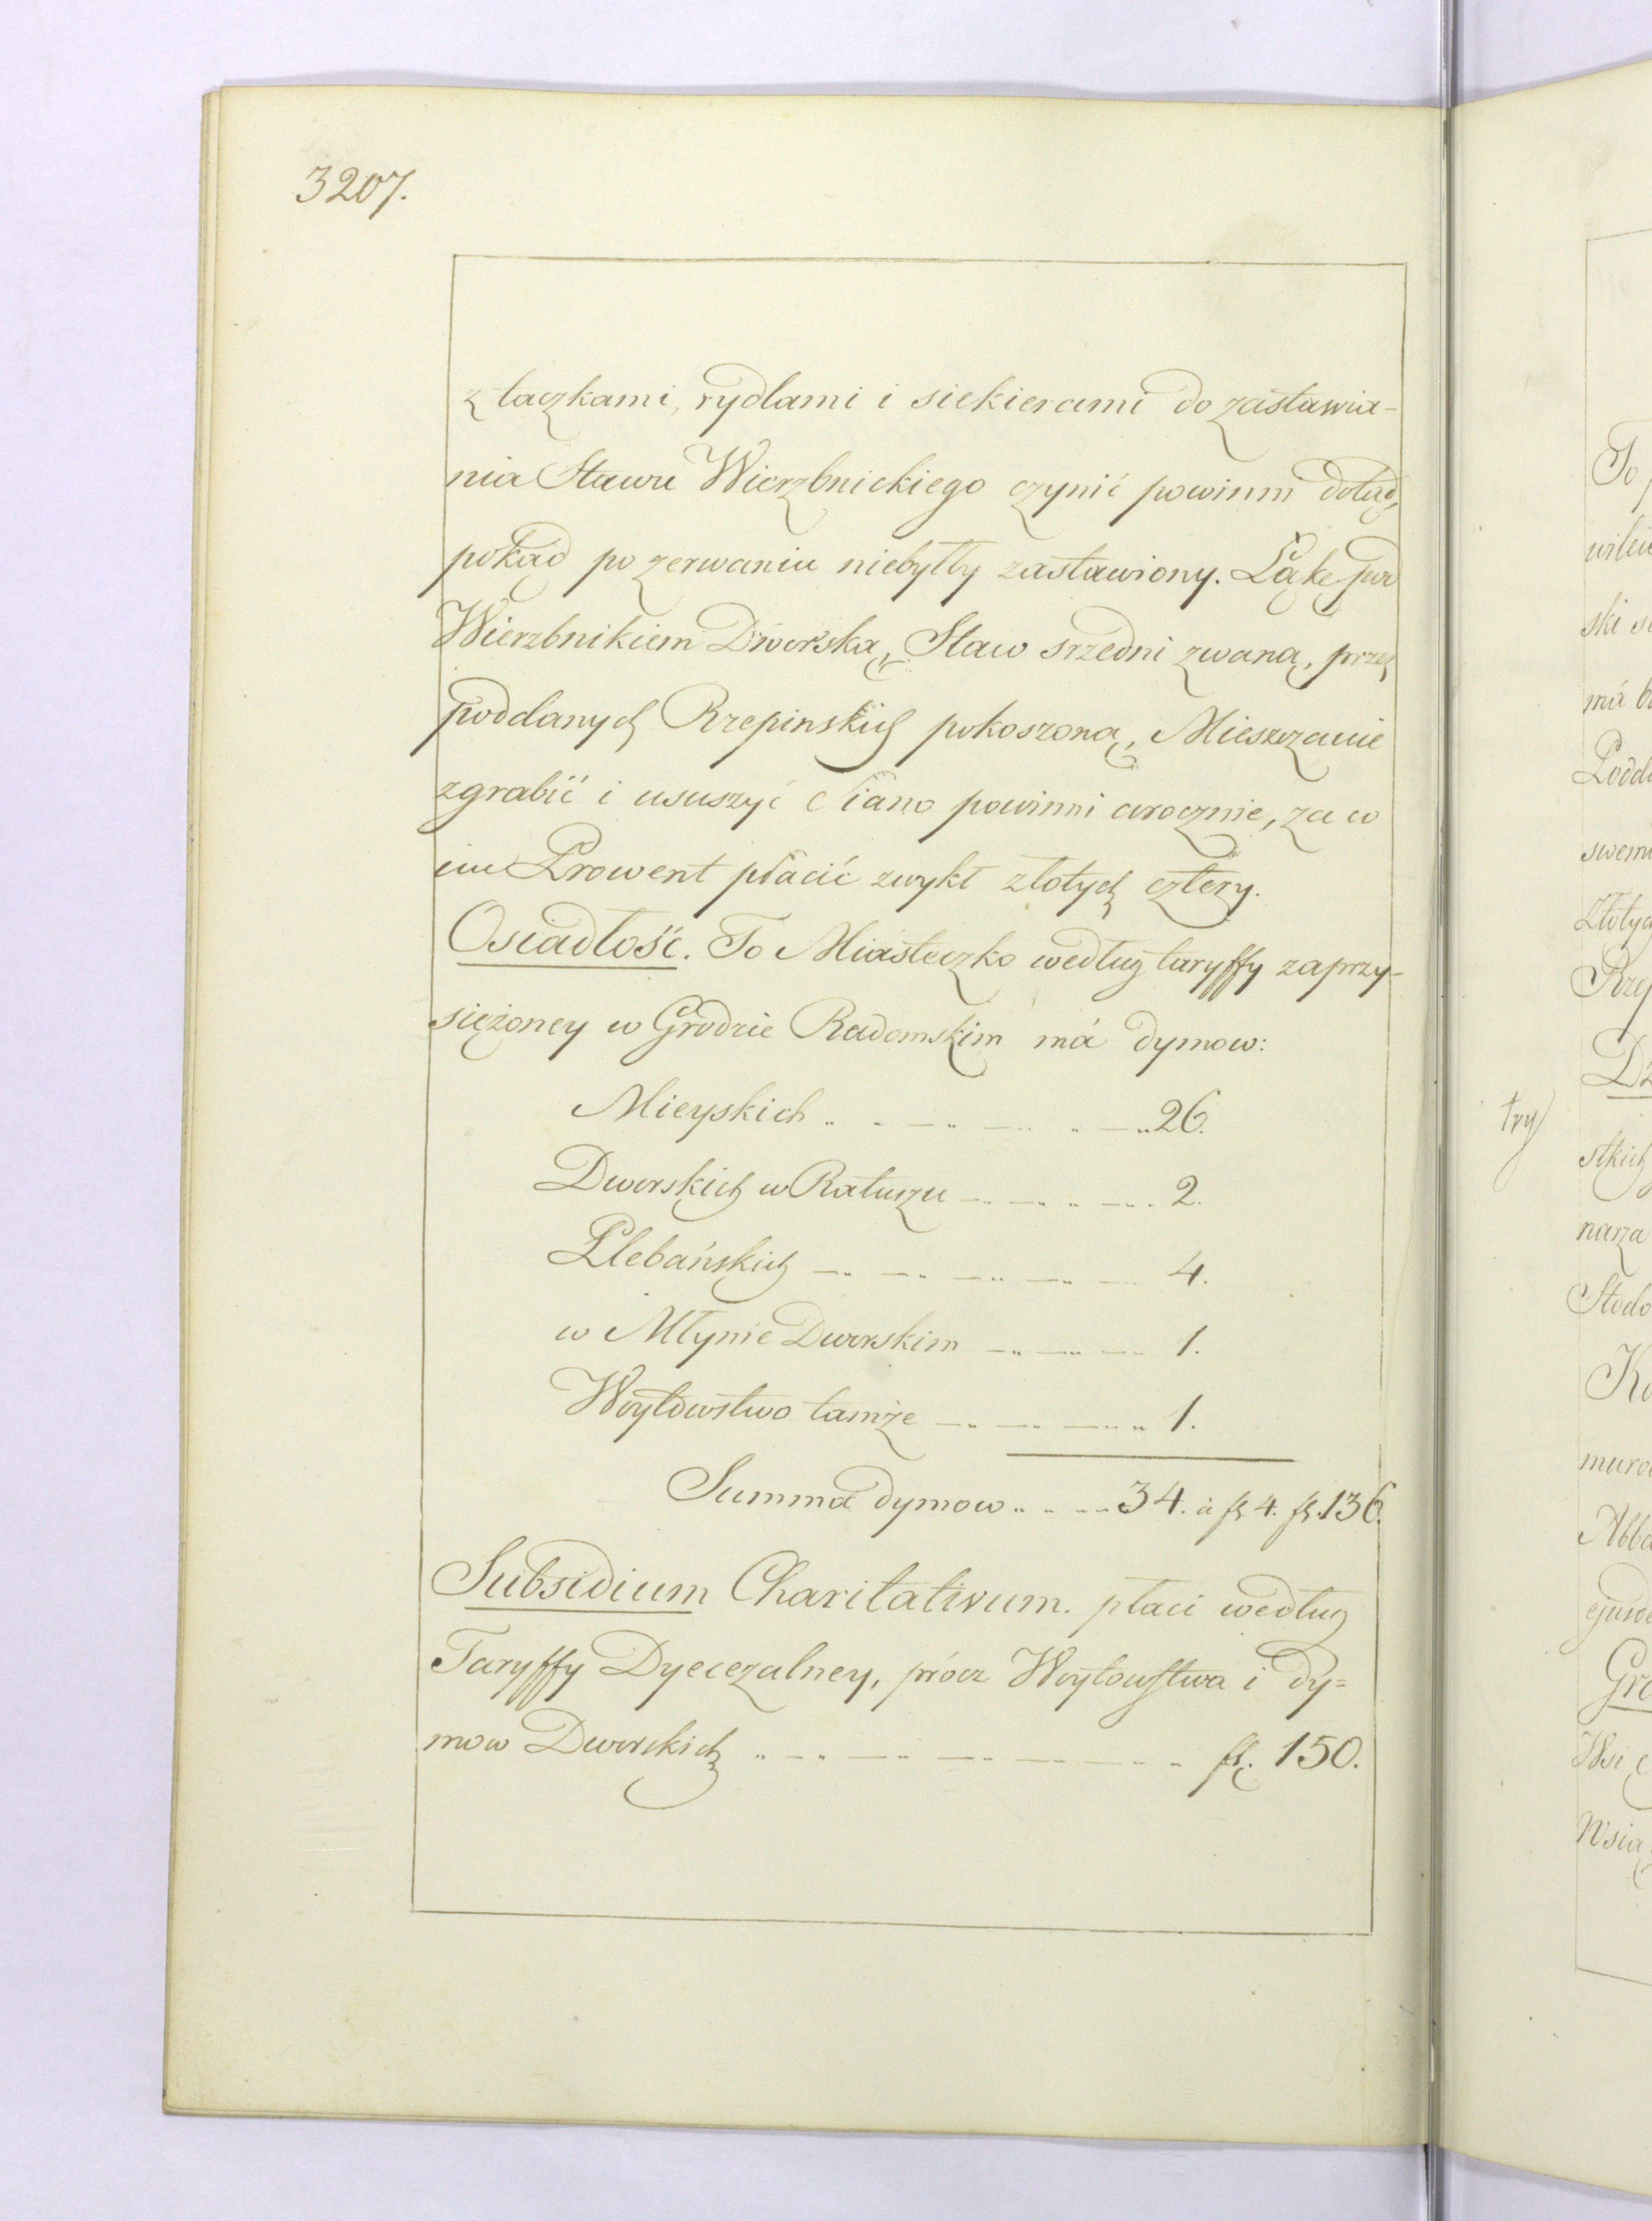 3207.
z taczkami, rydlami i siekierami do zastawia-
nia Stawu Wierzbnickiego czynić powinni dotąd,
pokąd po zerwaniu niebyłby zastawiony. Łąkę pod
Wierzbnikiem Dworską, Staw srzedni zwaną, przez
poddanych Rzepinskich pokoszoną, Mieszczanie
zgrabić i ususzyć Siano powinni corocznie, za co
im Prowent płacić zwykł złotych cztery.
Osiadłość. To Miasteczko według taryffy zaprzy-
siężoney w Grodzie Radomskim má dymow:
Mieyskich .. . — .. — .. . — .. 26.
Dworskich w Ratuszu — .. — .. .. — .. . 2.
Plebańskich — .. — .. — .. — .. — 4.
w Młynie Dworskim — .. — .. — .. 1.
Woytowstwo tamże — .. — .. — .. .. 1.
Summa dymow .. . . — 34. à fl 4. fl. 136.
Subsidium Charitativum. płaci według
Taryffy Dyecezalney, prócz Woytowstwa i dy=
mow Dworskich .. — .. — .. — .. — .. — . fl. 150.
try
To
wilcie
ski
má
Podd
swemu
Złotyc
Rze
Dz
skich
narza
Stodo
Ka
muro
Abba
ejusde
Gro
Wsi
Wsia